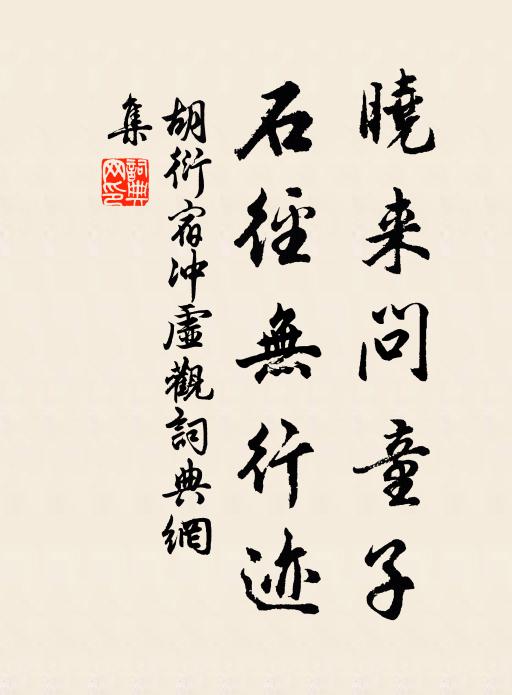 曉来問童子
石徑無行迹
胡衍宿沖虛觀詞典網
集
詞典
网印